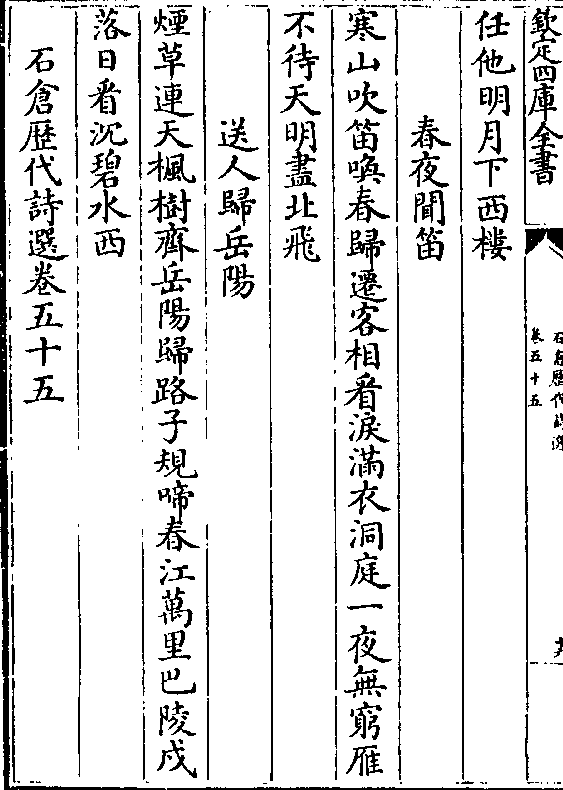 欽定四庫全書
卷五十五
任他明月下西樓
春夜聞笛
寒山吹笛喚春歸遷客相看淚滿衣洞庭一夜無窮雁
不待天明盡北飛
送人歸岳陽
煙草連天楓樹齊岳陽歸路子規啼春江萬里巴陵戍
落日看沉碧水西
石倉歷代詩選卷五十五